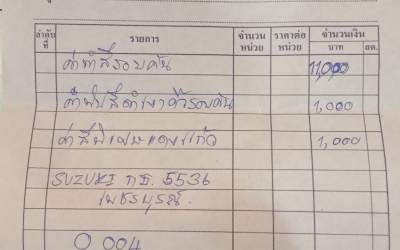 ลำดับที่ รายการ จำนวนหน่วย ราคาต่อหน่วย จำนวนเงิน บาท สต.
ค่าทำสีรอบคัน 11,000
ค่าพ่นสีดำเงาคิ้วรอบคัน 1,000
ค่าสี 1,000
SUZUKI กธ. 5536
เพชรบูรณ์
0 004